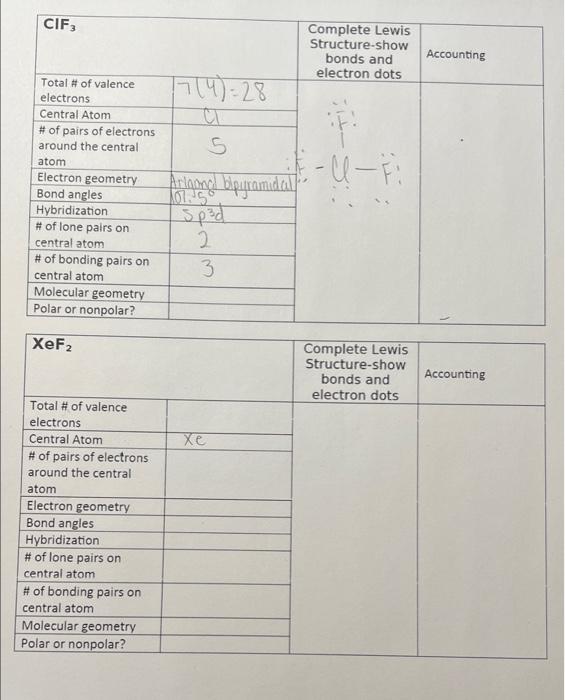 ClF₃
Complete Lewis
Structure-show
bonds and
electron dots
Accounting
Total # of valence
electrons
7(4)=28
Central Atom
Cl
# of pairs of electrons
around the central
atom
5
Electron geometry
bipyramidal
Bond angles
Hybridization
sp³d
# of lone pairs on
central atom
2
# of bonding pairs on
central atom
3
Molecular geometry
Polar or nonpolar?
F
F - Cl - F
XeF₂
Complete Lewis
Structure-show
bonds and
electron dots
Accounting
Total # of valence
electrons
Central Atom
Xe
# of pairs of electrons
around the central
atom
Electron geometry
Bond angles
Hybridization
# of lone pairs on
central atom
# of bonding pairs on
central atom
Molecular geometry
Polar or nonpolar?